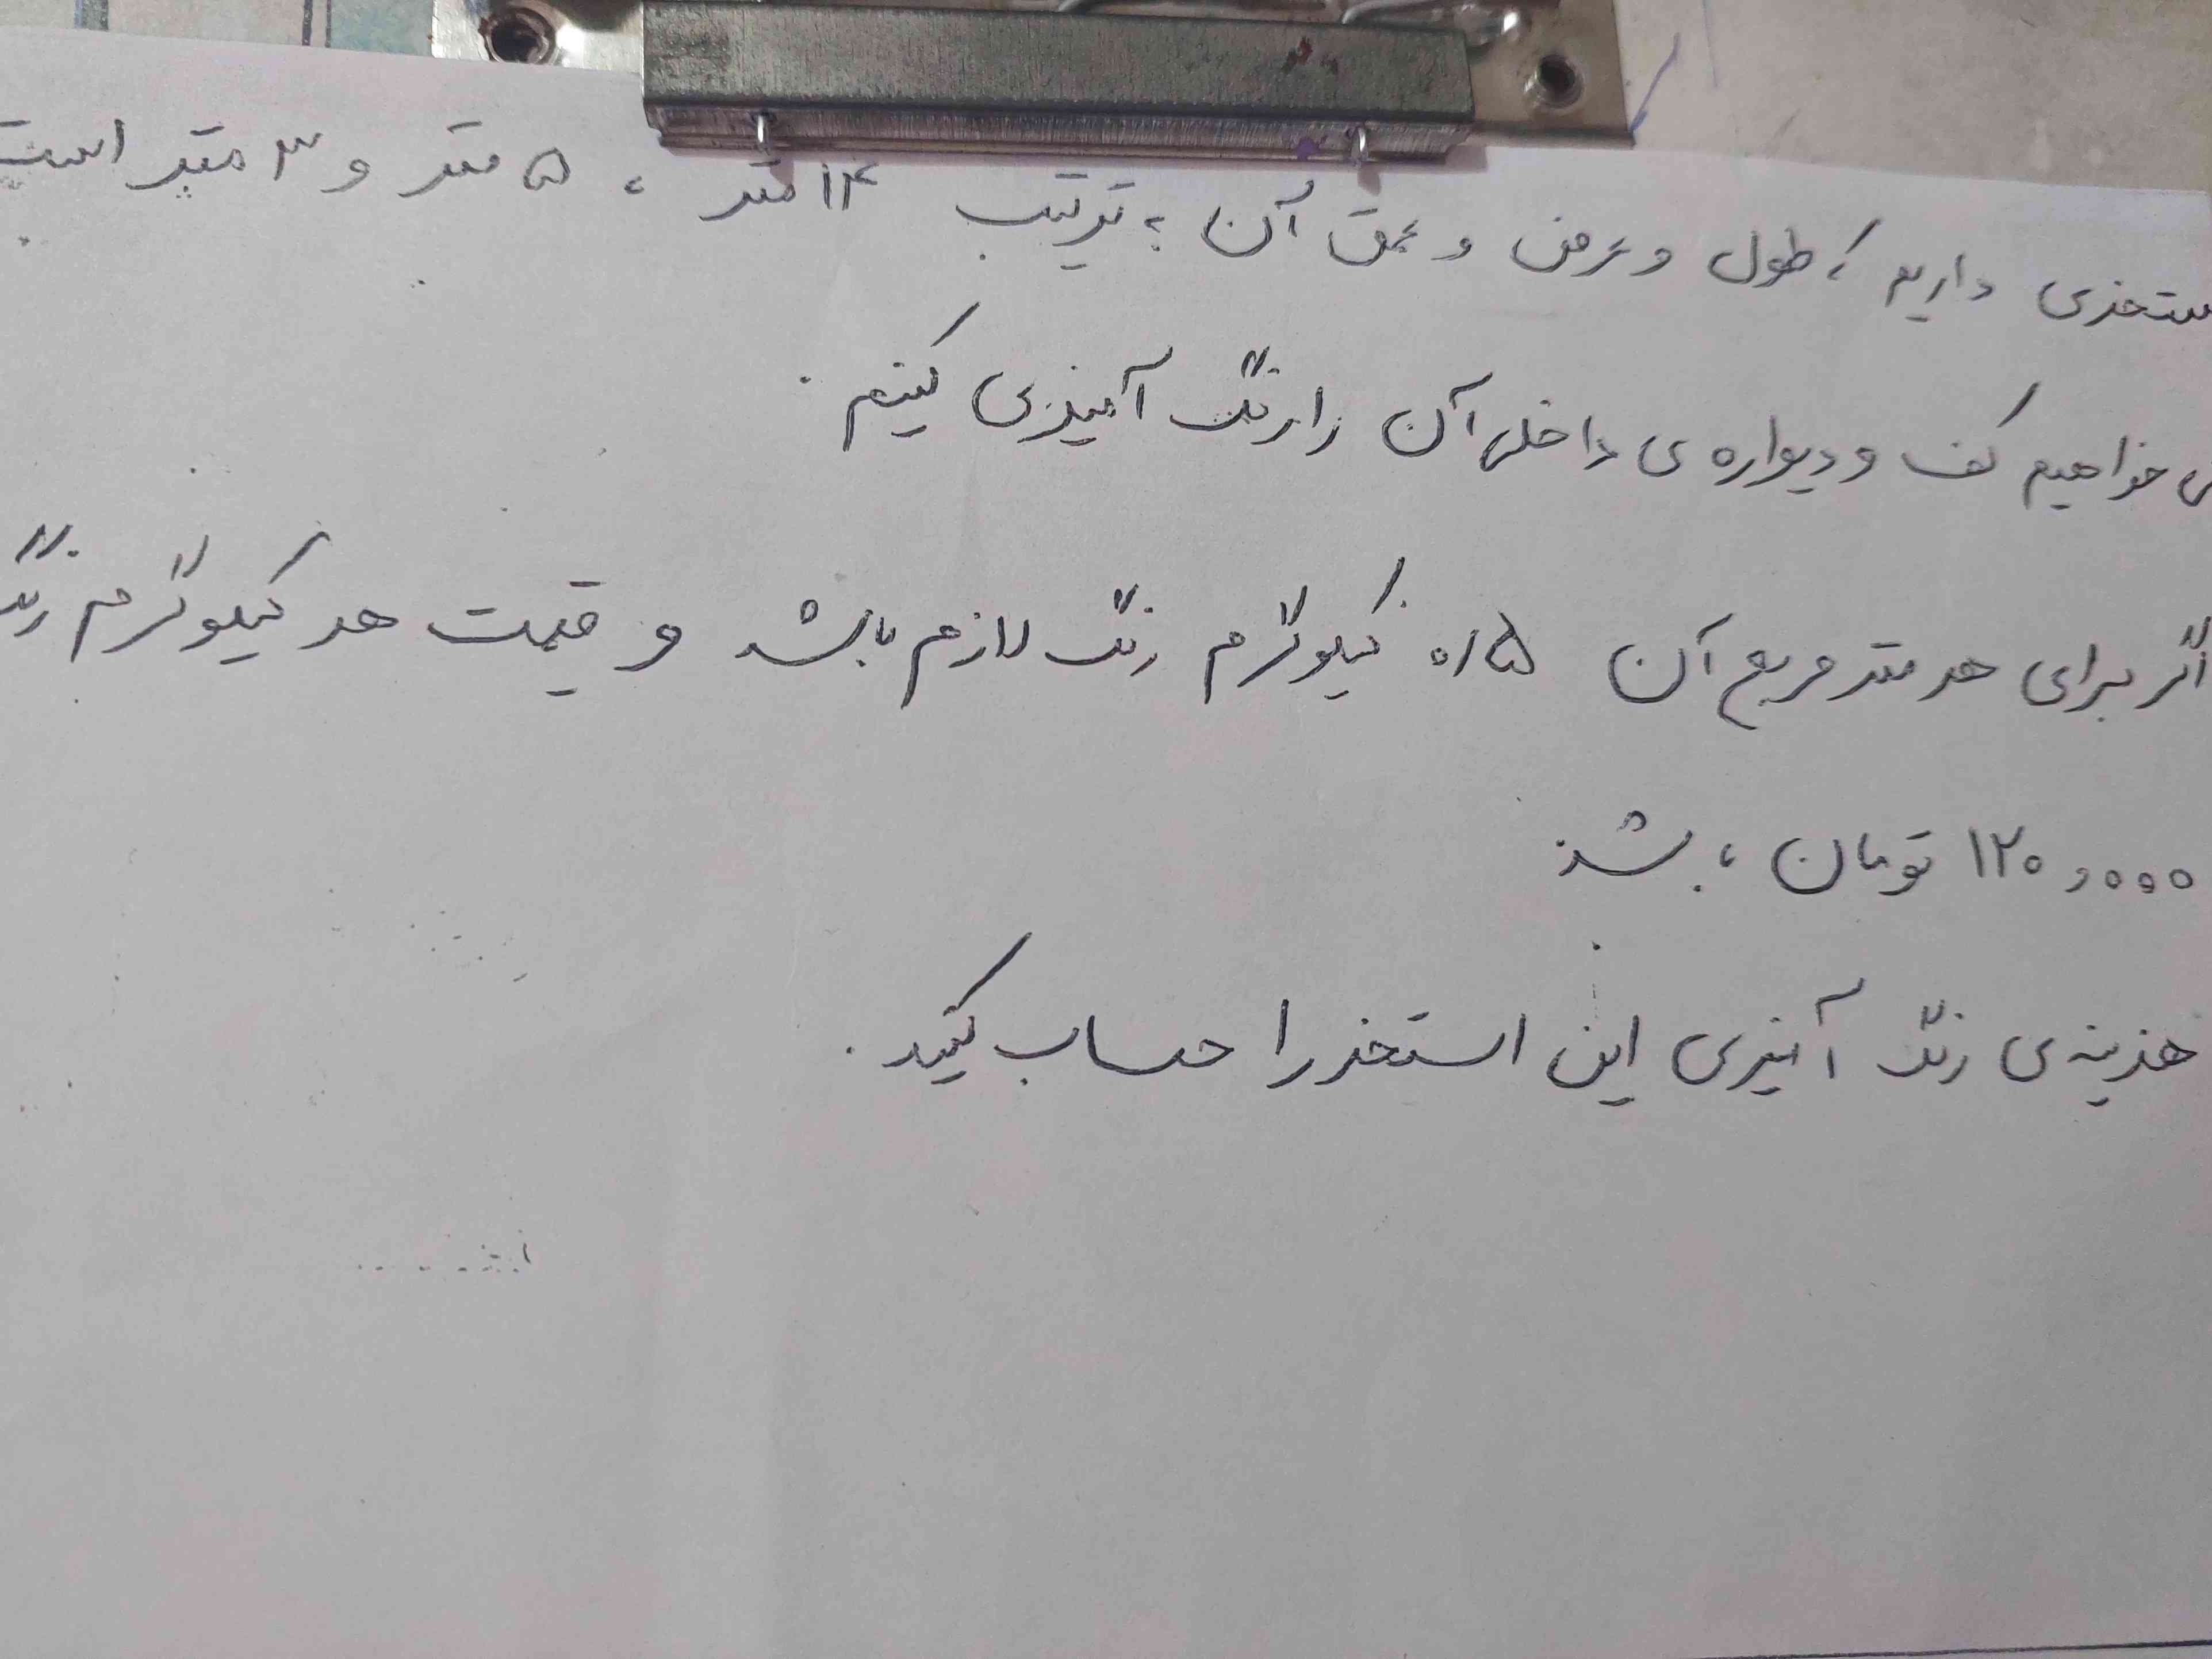 ستخری داریم که طول و عرض و عمق آن به ترتیب ۱۴ متر ، ۵ متر و ۳ متر است
ی خواهیم کف و دیواره ی داخلی آن را رنگ آمیزی کنیم.
اگر برای هر متر مربع آن ۰/۵ کیلوگرم رنگ لازم باشد و قیمت هر کیلوگرم رنگ
۱۲۰,۰۰۰ تومان باشد.
هزینه ی رنگ آمیزی این استخر را حساب کنید.